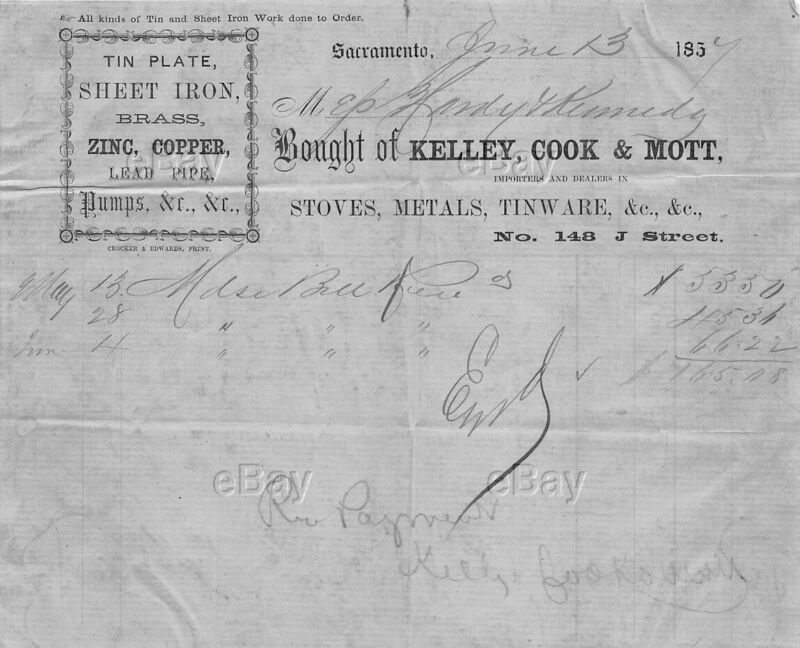 All kinds of Tin and Sheet Iron Work done to Order.
TIN PLATE,
SHEET IRON,
BRASS,
ZINC, COPPER,
LEAD PIPE,
Pumps, &c., &c.,
CROCKER & EDWARDS, PRINT.
Sacramento, June 13 1857
Mess Hardy & Kennedy
Bought of KELLEY, COOK & MOTT,
IMPORTERS AND DEALERS IN
STOVES, METALS, TINWARE, &c., &c.,
No. 148 J Street.
May 13 Mdse Bill $ 53 50
28 " " " 45 36
June 4 " " " 66.22
$ 165.08
Rec Payment
Kelley Cook & Mott
eBay
eBay
eBay
eBay